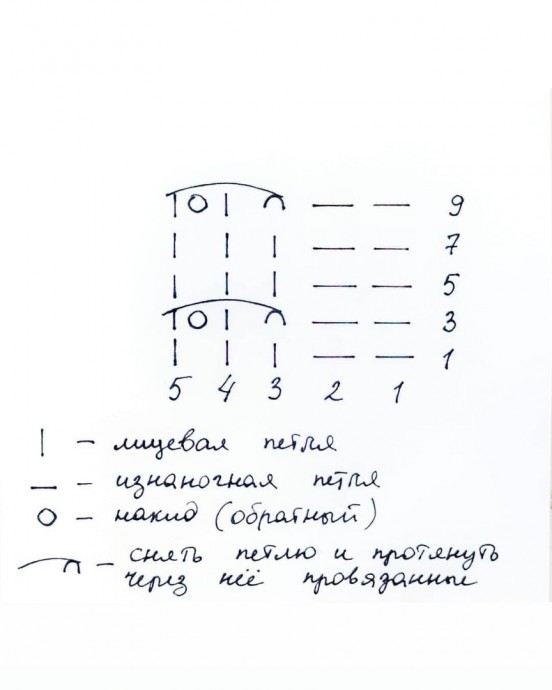 | O | ∩ — — 9
| | | — — 7
| | | — — 5
| O | ∩ — — 3
| | | — — 1
5 4 3 2 1
| – лицевая петля
— – изнаночная петля
O – накид (обратный)
∩ – снять петлю и протянуть
через неё провязанные